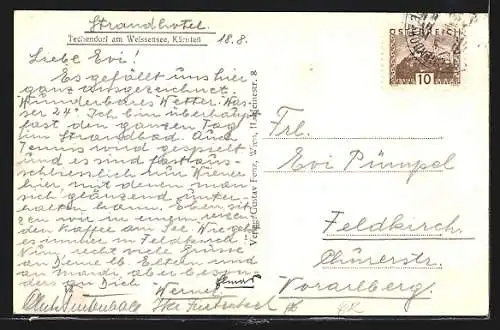 Strandhotel
Techendorf am Weissensee, Kärnten
18.8.
Liebe Evi!
Es gefällt uns hier
ganz ausgezeichnet.
Wunderbares Wetter. Was-
ser 24°. Ich bin überhaupt
fast den ganzen Tag
im Strandbad. Auch
Tennis wird gespielt
und es sind fast aus-
schliesslich nur Wiener
hier, mit denen man
sich glänzend unter-
halten kann. Eben sit-
zen wir in einem reizen-
den Kaffee am See. Wie geht
es immer in Feldkirch?
Nun recht viele Grüsse
an Deine lb. Eltern und
an Mandi, aber beson-
ders an Dich
Werner
Verlag Gustav Fenz, Wien, 8
ÖSTERREICH
10
Frl.
Evi Pümpel
Feldkirch
Churerstr.
Vorarlberg.